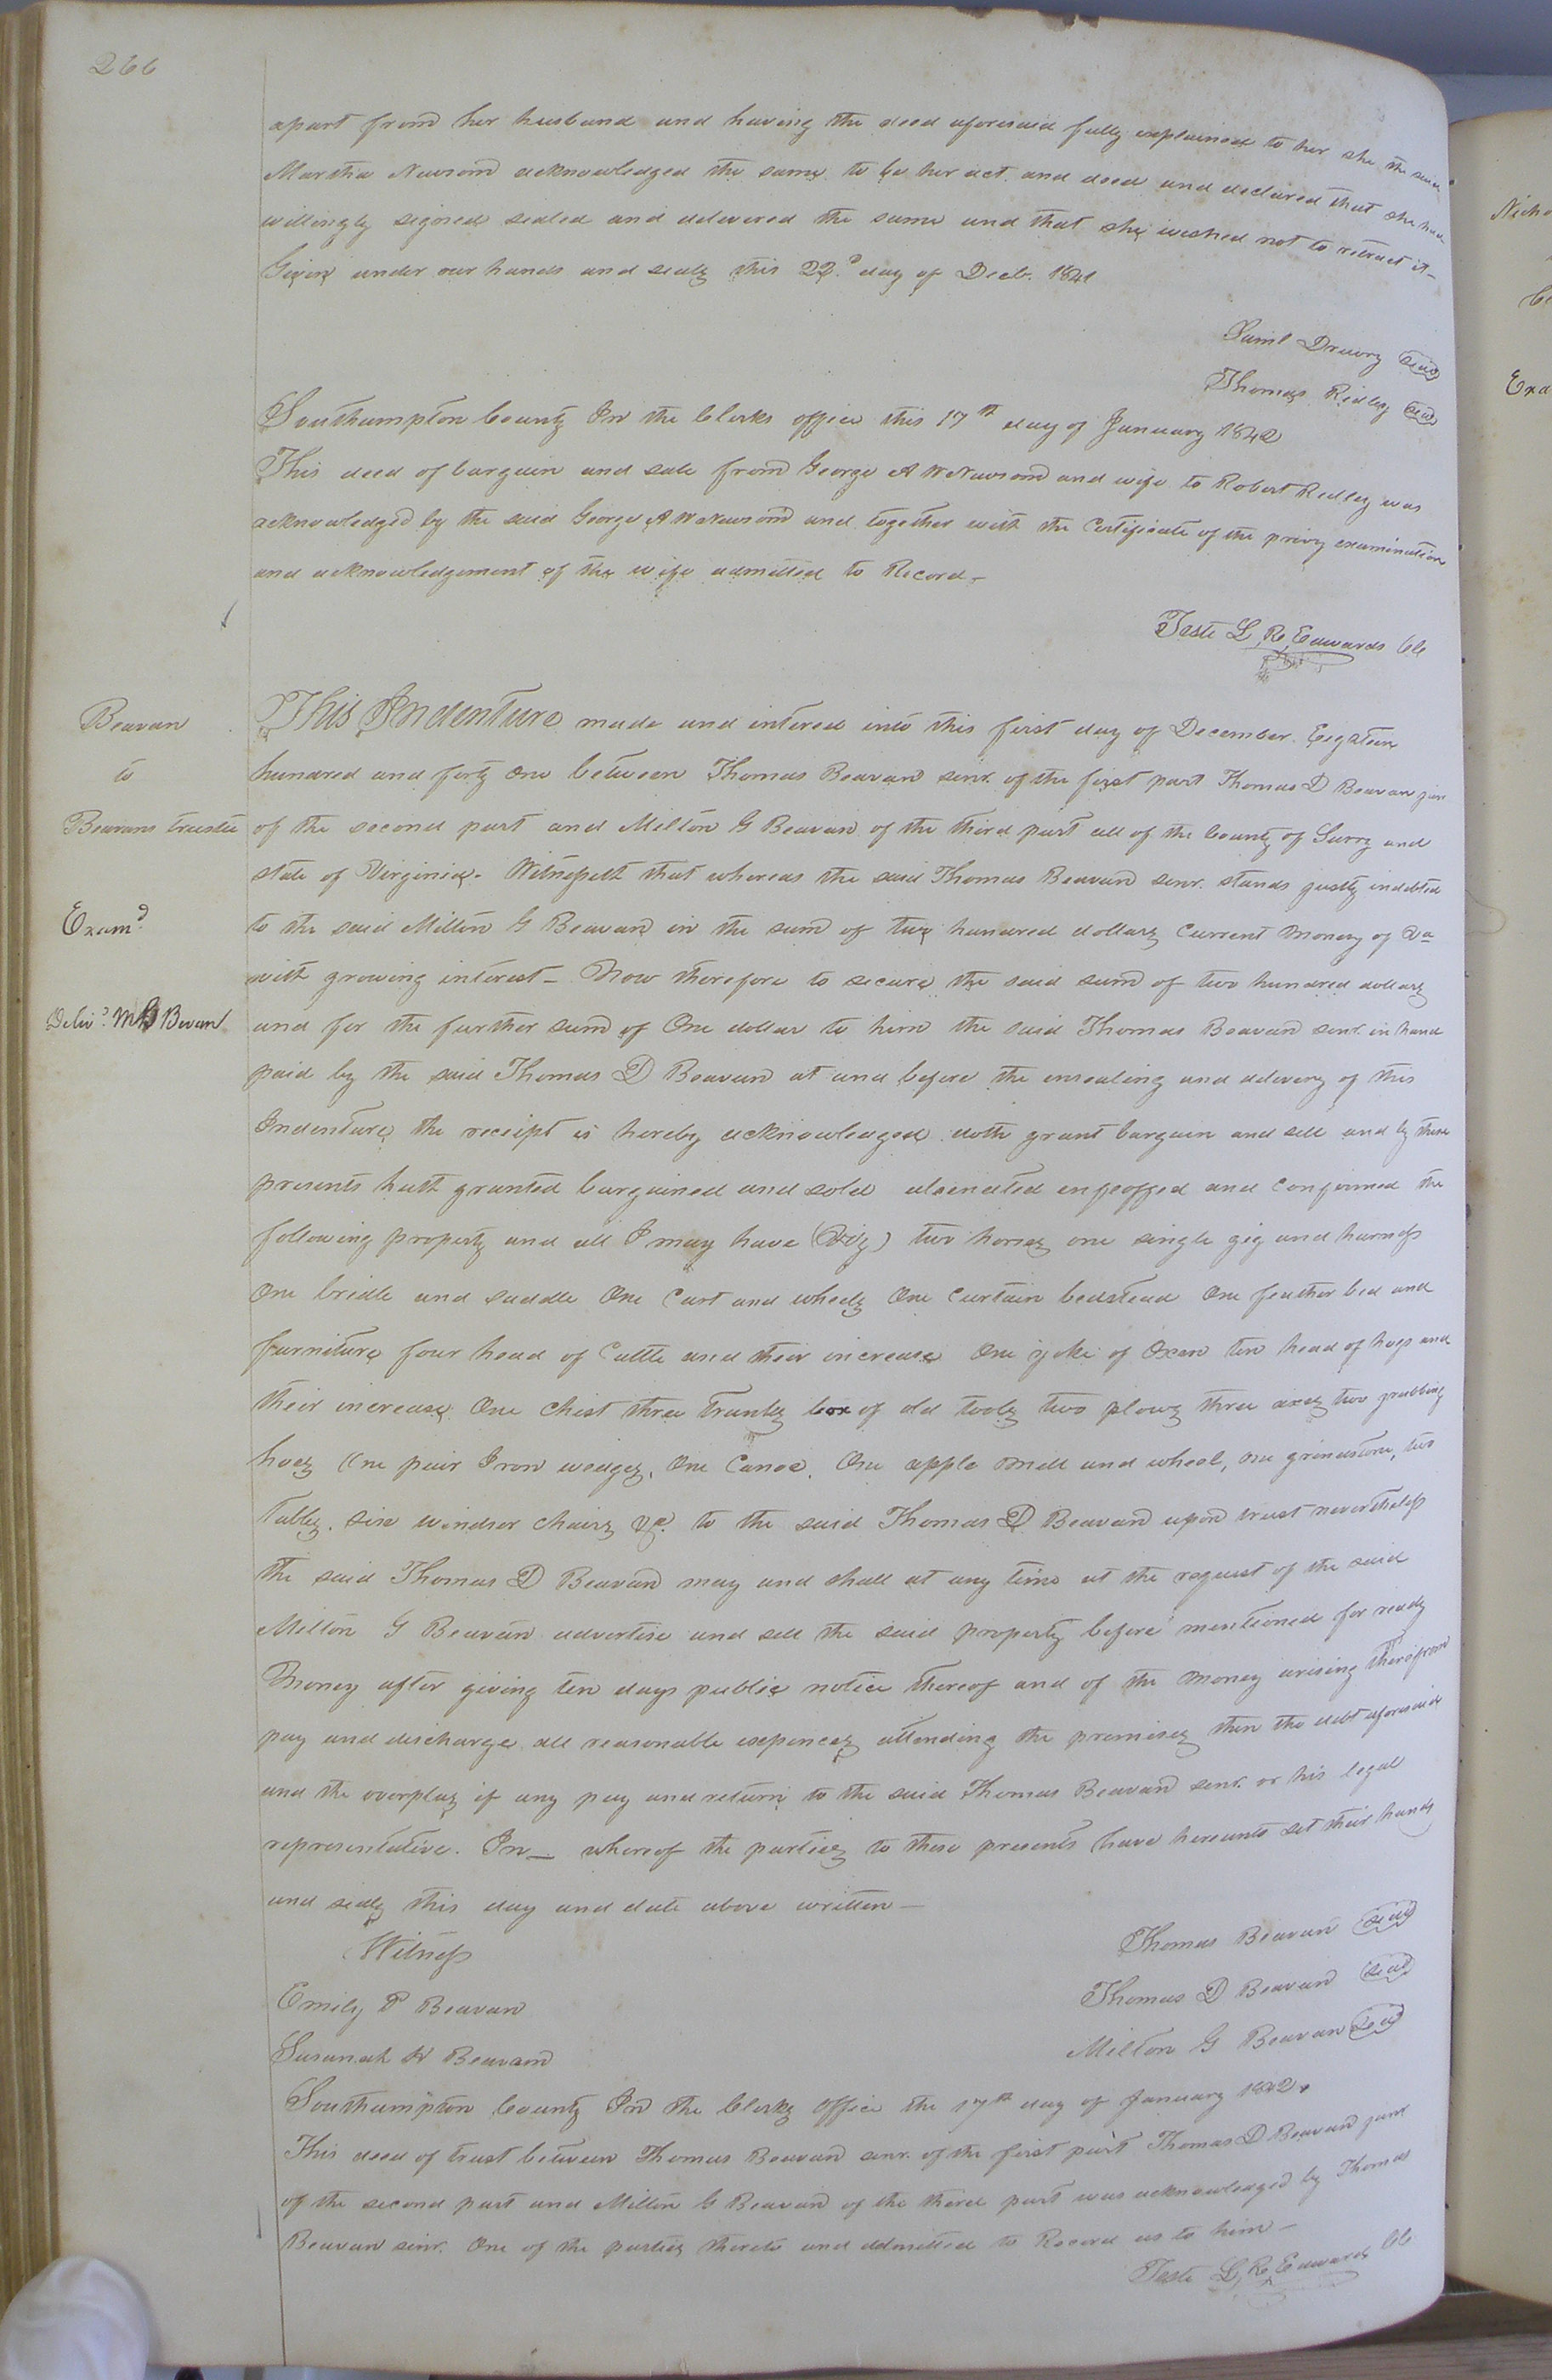 266
apart from her husband and having the deed aforesaid fully explained to her she the said
Martha Newsom acknowledged the same to be her act and deed and declared that she had
willingly signed sealed and delivered the same and that she wished not to retract it -
Given under our hands and seals this 22d day of Decb. 1841
Saml Drewry Seal
Thomas Ridley Seal
Southampton County In the Clerks office this 17th day of January 1842
This deed of bargain and sale from George A W Newsom and wife to Robert Ridley was
acknowledged by the said George A W Newsom and together with the Certificate of the privy examination
and acknowledgement of the wife admitted to Record -
Teste L, R, Edwards CC
Beavan
to
Beavans trustee
Examd
Delivd. M G Bevan
This Indenture made and intered into this first day of December. Eighteen
hundred and forty One between Thomas Beavan senr. of the first part Thomas D Beavan jun
of the second part and Milton G Beavan of the third part all of the County of Surry and
state of Virginia. Witnesseth that whereas the said Thomas Beavan senr. stands justly indebted
to the said Milton G Beavan in the sum of two hundred dollars Current money of Va
with growing interest - Now therefore to secure the said sum of two hundred dollars
and for the further sum of One dollar to him the said Thomas Beavan senr. in hand
paid by the said Thomas D Beavan at and before the ensealing and delivery of this
Indenture, the receipt is hereby acknowledged doth grant bargain and sell and by these
presents hath granted bargained and sold alienated enfeoffed and confirmed the
following property and all I may have (Viz) two horses one single gig and harness
One bridle and saddle One Cart and wheels One Curtain bedstead One feather bed and
furniture four head of Cattle and their increase One yoke of Oxen ten head of hogs and
their increase One Chist three trunks box of old tools two plows three axes two grubbing
hoes One pair Iron wedges, One Canoe, One apple mill and wheel, one grindstone, two
Tables, six windsor chairs &c. to the said Thomas D Beavan upon trust nevertheless
the said Thomas D Beavan may and shall at any time at the request of the said
Milton G Beavan advertise and sell the said property before mentioned for ready
Money after giving ten days public notice thereof and of the money arising therefrom
pay and discharge all reasonable expences attending the premises then the debt aforesaid
and the overplus if any pay and return to the said Thomas Beavan senr. or his legal
representative. In - whereof the parties to these presents have hereunto set their hands
and seals this day and date above written -
Witness
Thomas Beavan Seal
Emily P Beavan
Thomas D Beavan Seal
Susanah W Beavan
Milton G Beavan Seal
Southampton County In the Clerks Office the 17th day of January 1842.
This deed of trust between Thomas Beavan senr. of the first part Thomas D Beavan junr
of the second part and Milton G Beavan of the third part was acknowledged by Thomas
Beavan senr. One of the parties thereto and admitted to Record as to him -
Teste L, R, Edwards CC